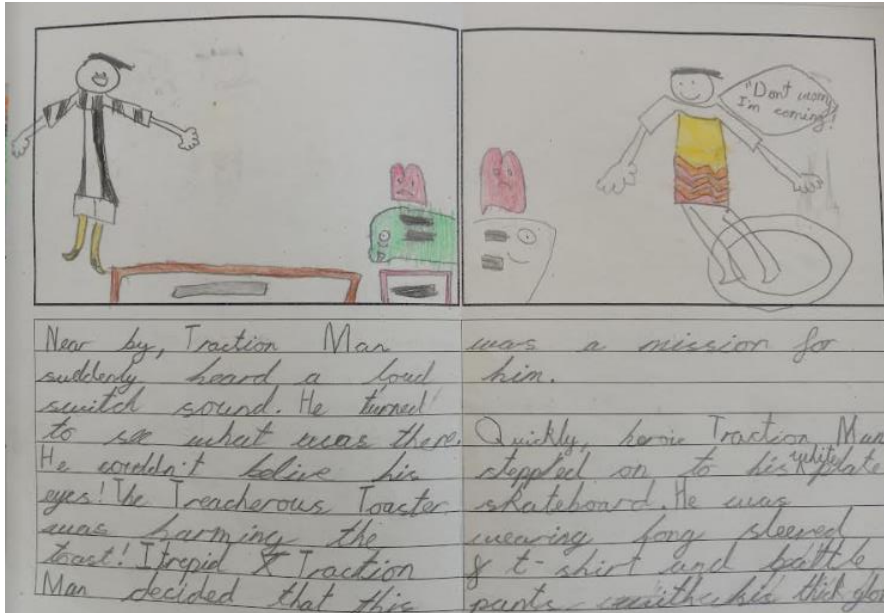 "Dont worry
I'm coming!
Near by, Traction Man
suddenly heard a loud
switch sound. He turned
to see what was there.
He couldn't belive his
eyes! The Treacherous Toaster
was harming the
toast! Itrepid Traction
Man decided that this
was a mission for
him.
Quickly, heroic Traction Man
steppled on to his white plate
skateboard. He was
wearing long sleeved
t-shirt and battle
pants with his thick